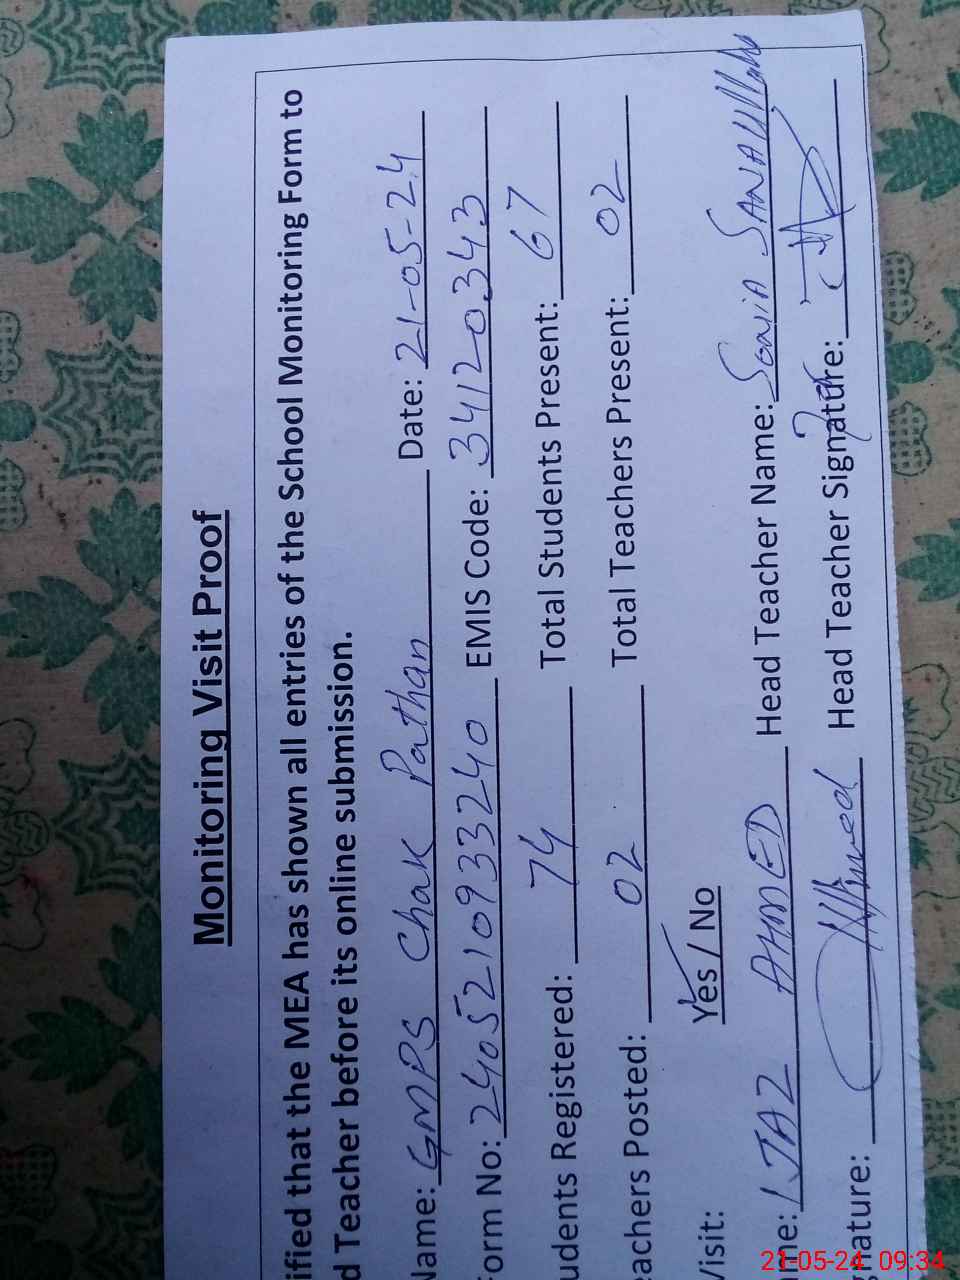 Monitoring Visit Proof
ified that the MEA has shown all entries of the School Monitoring Form to
d Teacher before its online submission.
Name: GMPS Chak Pathan Date: 21-05-24
Form No: 2405210933240 EMIS Code: 34120343
udents Registered: 74 Total Students Present: 67
eachers Posted: 02 Total Teachers Present: 02
Visit: Yes / No
ame: IJAZ AHMED Head Teacher Name: Sonia SANAUllah
gnature: Ahmed Head Teacher Signature:
21-05-24 09:34